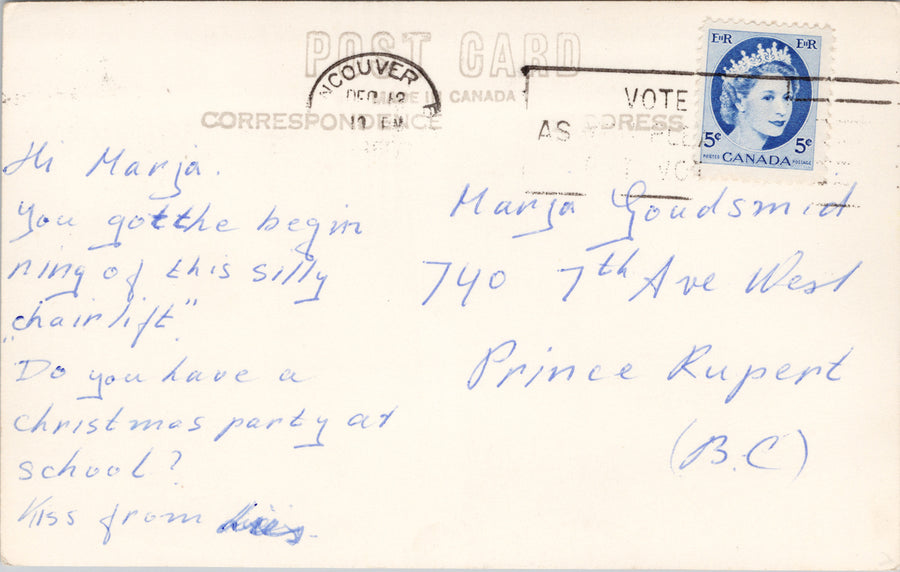 POST CARD
MADE IN CANADA
CORRESPONDENCE ADDRESS
NCOUVER
DEC 12
VOTE
AS
EIIR EIIR
5¢ 5¢
POSTES CANADA POSTAGE
Hi Marja.
You got the begin
ning of this silly
„chairlift"
Do you have a
christmas party at
school?
Kiss from
Marja Goudsmid
740 7th Ave West
Prince Rupert
(B.C)